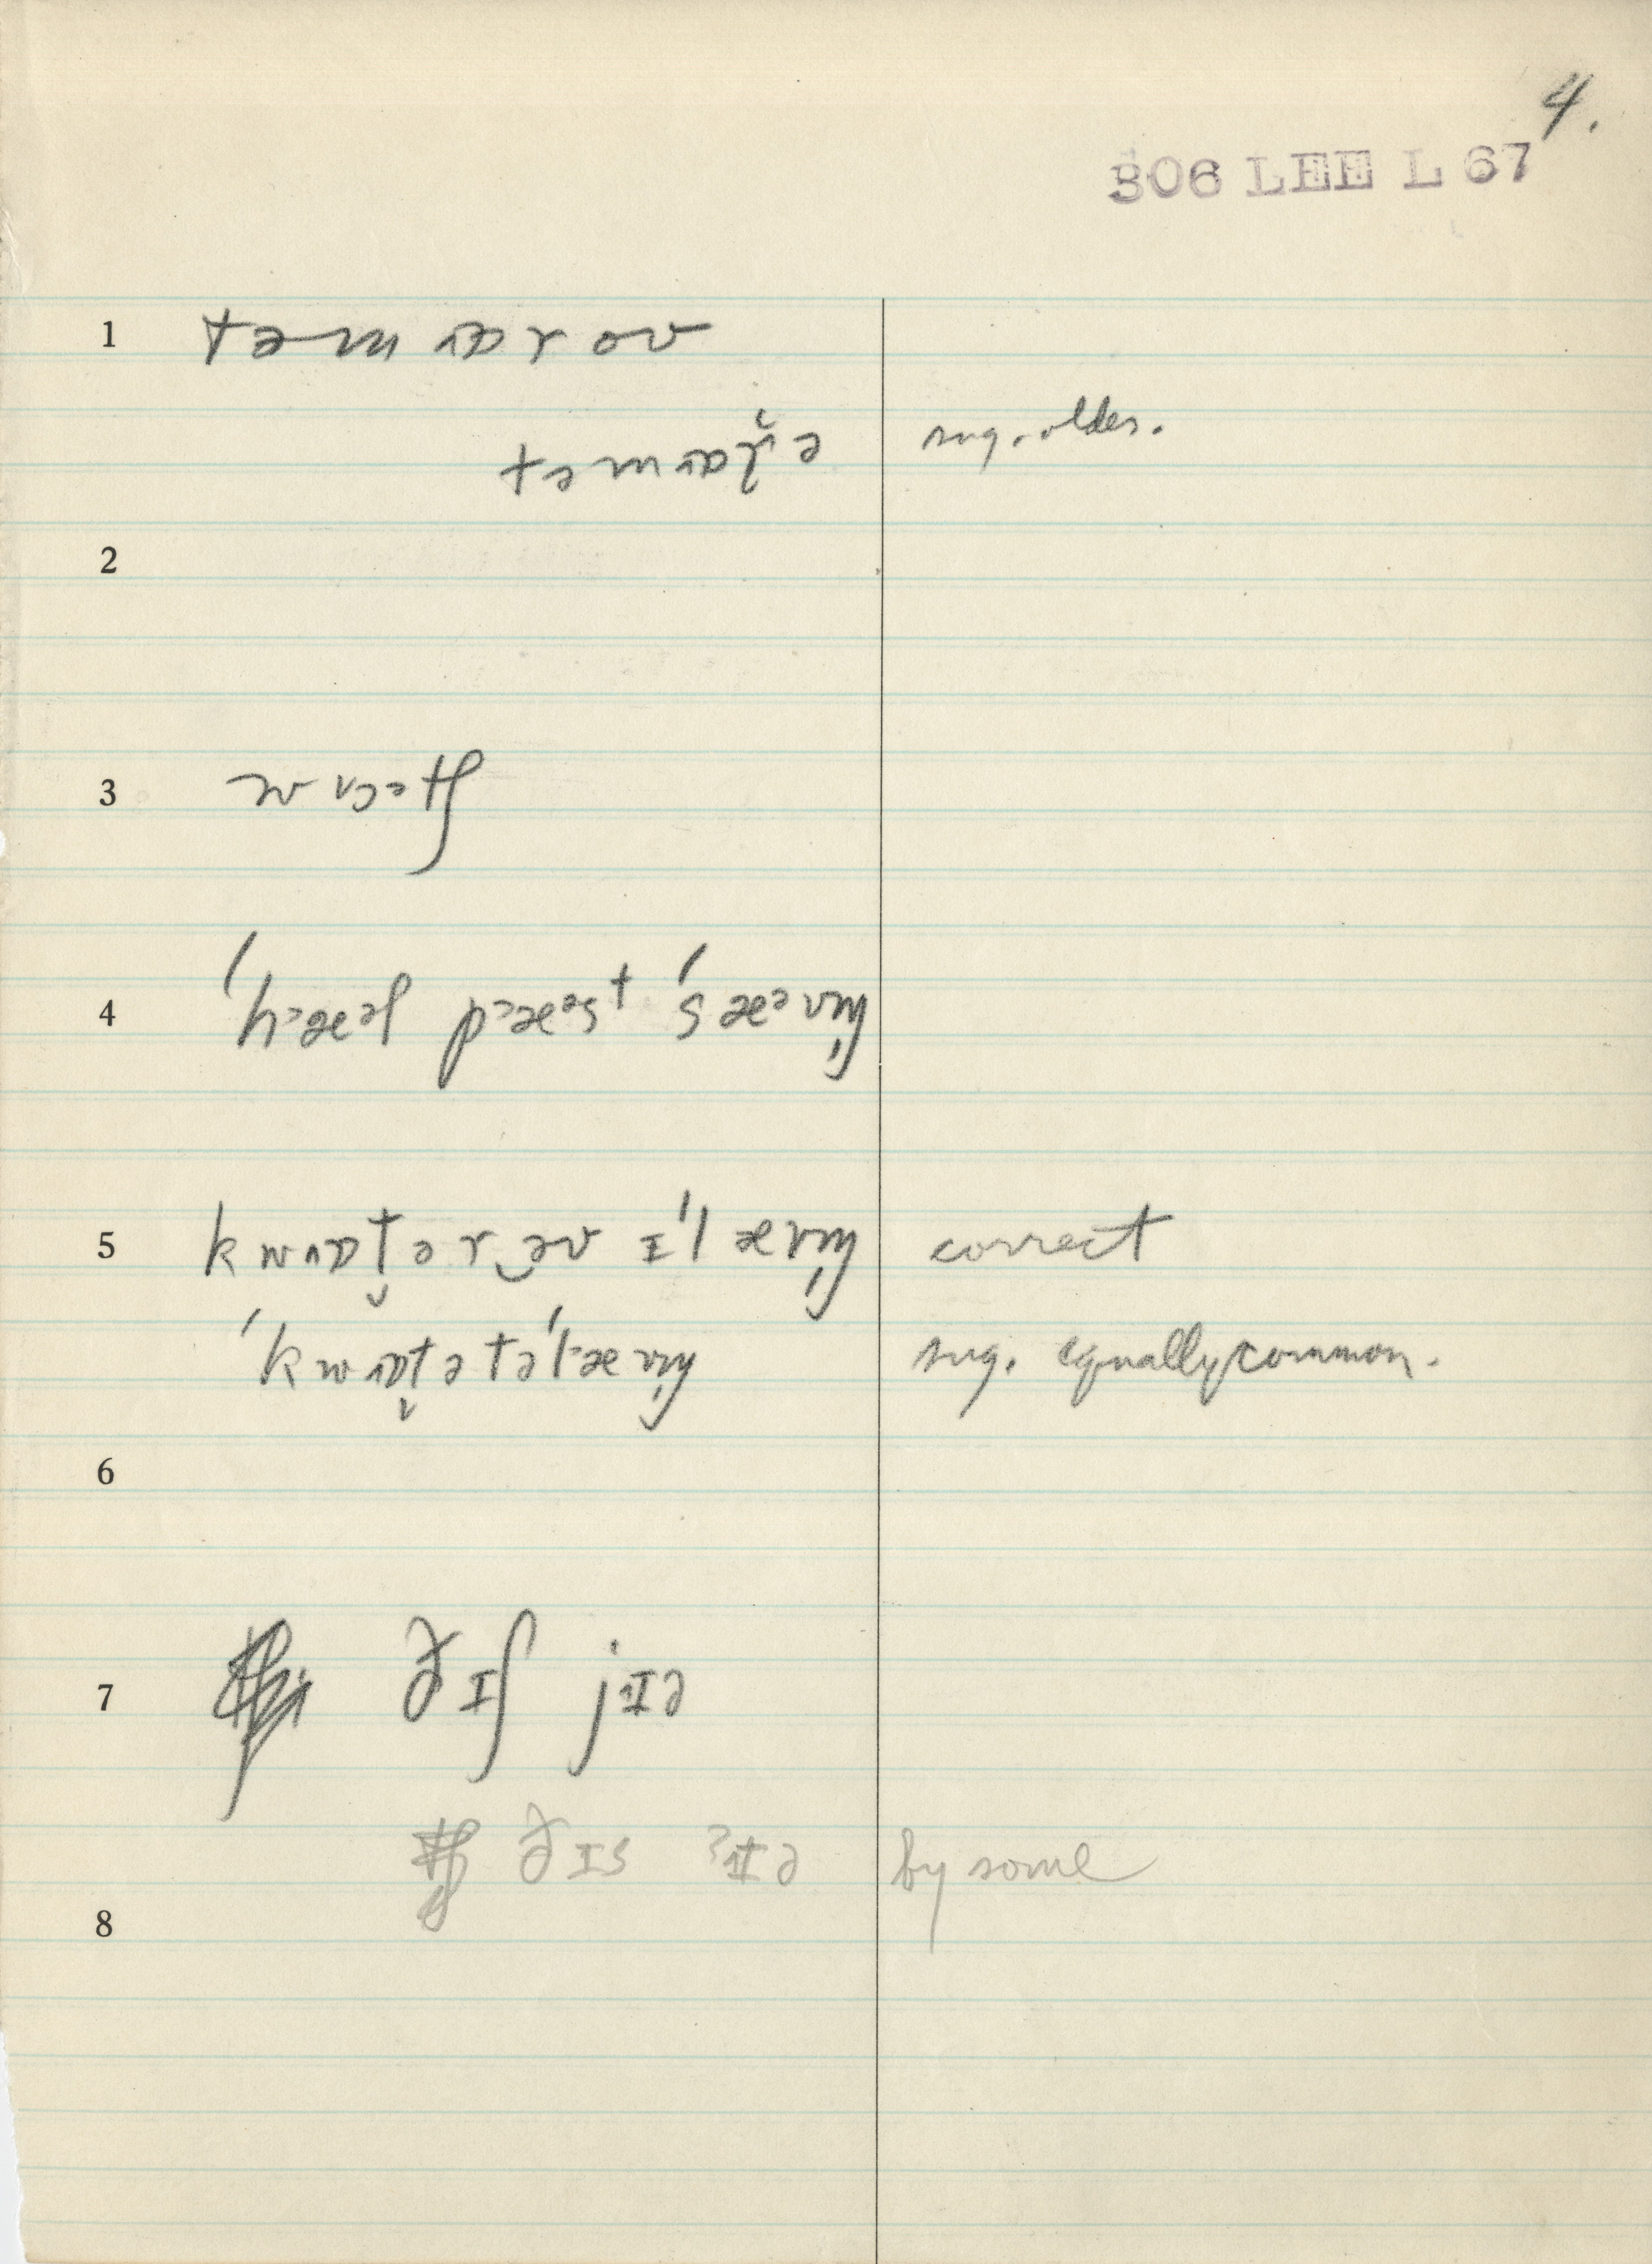 4.
306 LEE L 67
1 təmɒroʊ
təmɒrə sug. older.
2
3 wɒətʃ
4 ˈhæəl pæəst ˈsæəvn̩
5 kwɒt̬ər əv ɪˈlævn̩ correct
ˈkwɒt̬ətəˈlævn̩ sug. equally common.
6
7 ðɪʃ jɪə
ðɪs ɪə by some
8